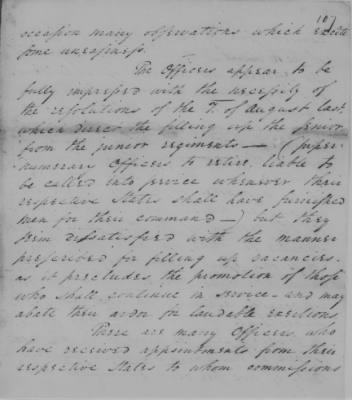 107
occasion many observations which excite
some uneasiness.
The Officers appear to be
fully impressed with the necessity of
the resolutions of the 7. of August last,
which direct the filling up the Senior
from the junior regiments — (super-
numerary Officers to retire liable to
be called into service whenever their
respective States shall have furnished
men for their command —) but they
seem dissatisfied with the manner
prescribed for filling up vacancies.
as it precludes the promotion of those
who shall continue in service - and may
abate their ardor for laudable exertions.
There are many Officers who
have received appointments from their
respective States to whom commissions